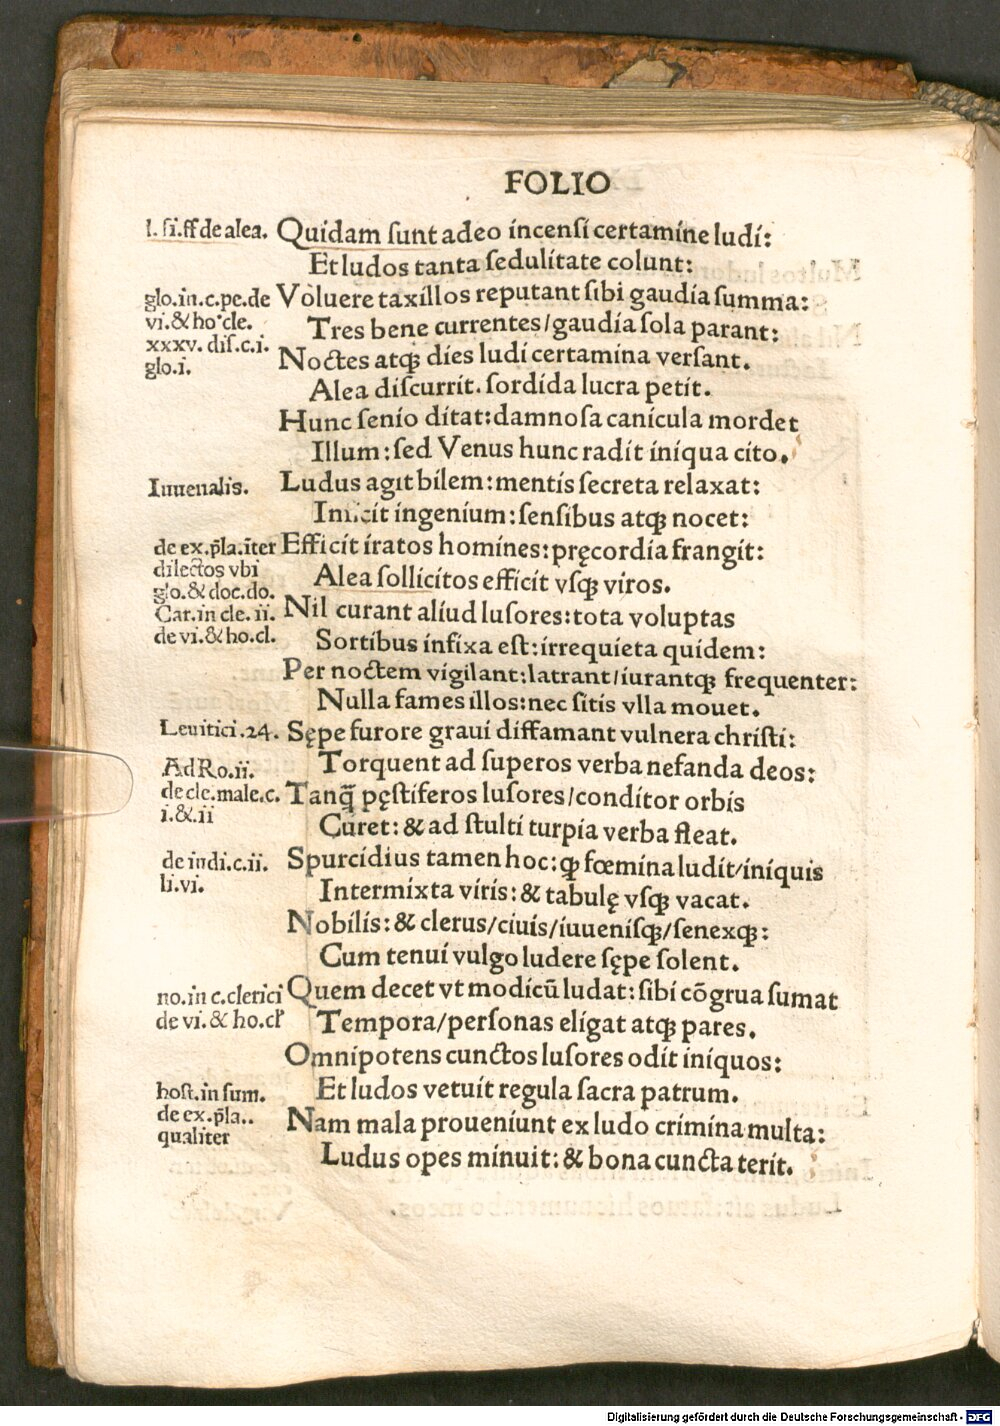 FOLIO
l. si. ff de alea. Quidam sunt adeo incensi certamine ludi:
Et ludos tanta sedulitate colunt:
glo. in. c. pe. de Voluere taxillos reputant sibi gaudia summa:
vi. & ho. cle. Tres bene currentes/gaudia sola parant:
xxxv. dis. c. i. Noctes atq; dies ludi certamina versant.
glo. i. Alea discurrit. sordida lucra petit.
Hunc senio ditat: damnosa canicula mordet
Illum: sed Venus hunc radit iniqua cito.
Iuuenalis. Ludus agit bilem: mentis secreta relaxat:
ingenium: sensibus atq; nocet:
de ex. p̄la. īter Efficit iratos homines: pręcordia frangit:
dilectos vbi
Alea sollicitos efficit vsq; viros.
glo. & doc. do.
Car. in cle. ii. Nil curant aliud lusores: tota voluptas
de vi. & ho. cl. Sortibus infixa est: irrequieta quidem:
Per noctem vigilant: latrant/iurantq; frequenter:
Nulla fames illos: nec sitis vlla mouet.
Leuitici. 24. Sępe furore graui diffamant vulnera christi:
Ad Ro. ii. Torquent ad superos verba nefanda deos:
de cle. male. c. Tanq̃ pęstiferos lusores/conditor orbis
i. & . ii Curet: & ad stulti turpia verba fleat.
de iudi. c. ii. Spurcidius tamen hoc: ꝙ fœmina ludit/iniquis
li. vi. Intermixta viris: & tabulę vsq; vacat.
Nobilis: & clerus/ciuis/iuuenisq;/senexq;:
Cum tenui vulgo ludere sępe solent.
no. in c. clerici Quem decet vt modicū ludat: sibi cōgrua sumat
de vi. & ho. cl' Tempora/personas eligat atq; pares.
Omnipotens cunctos lusores odit iniquos:
host. in sum. Et ludos vetuit regula sacra patrum.
de ex. p̄la.. Nam mala proueniunt ex ludo crimina multa:
qualiter Ludus opes minuit: & bona cuncta terit.
Digitalisierung gefördert durch die Deutsche Forschungsgemeinschaft - DFG